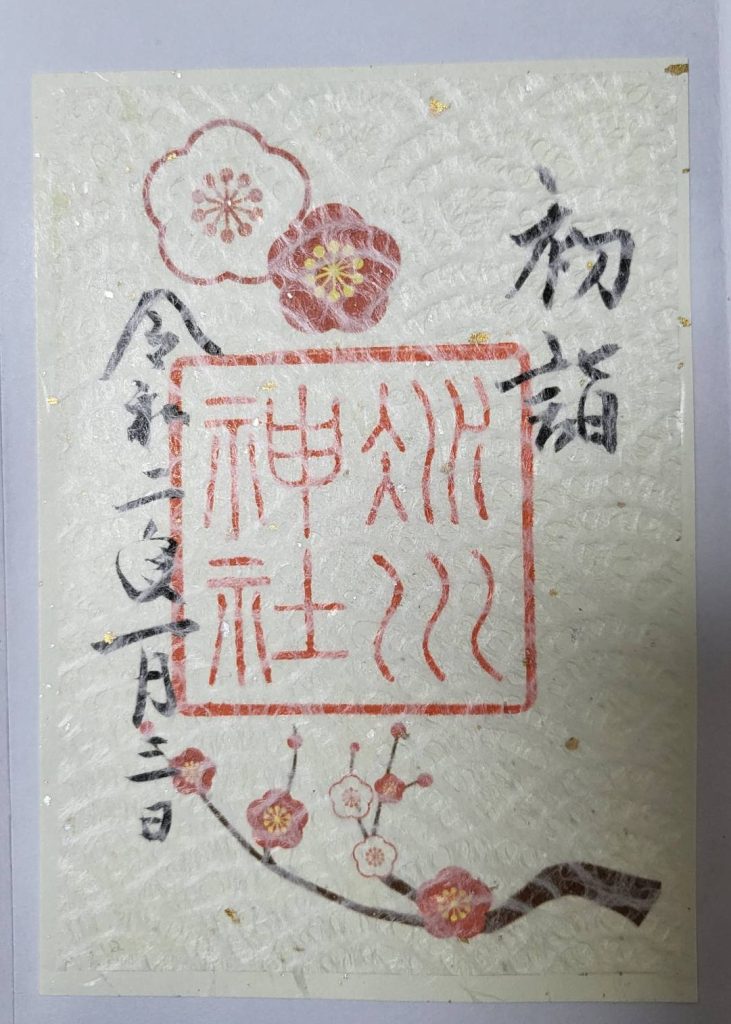 初詣
氷川
神社
令和二年一月三日